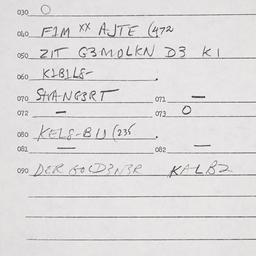 030 O
040 FIM XX AJTE (472
050 ZIT G3MOLKN D3 KI
060 K1B1L8-
070 STRANG3RT 071 —
072 — 073 O
080 KEL8-BIJ (235
081 — 082 —
090 D3R GOLD3N3R KALB2